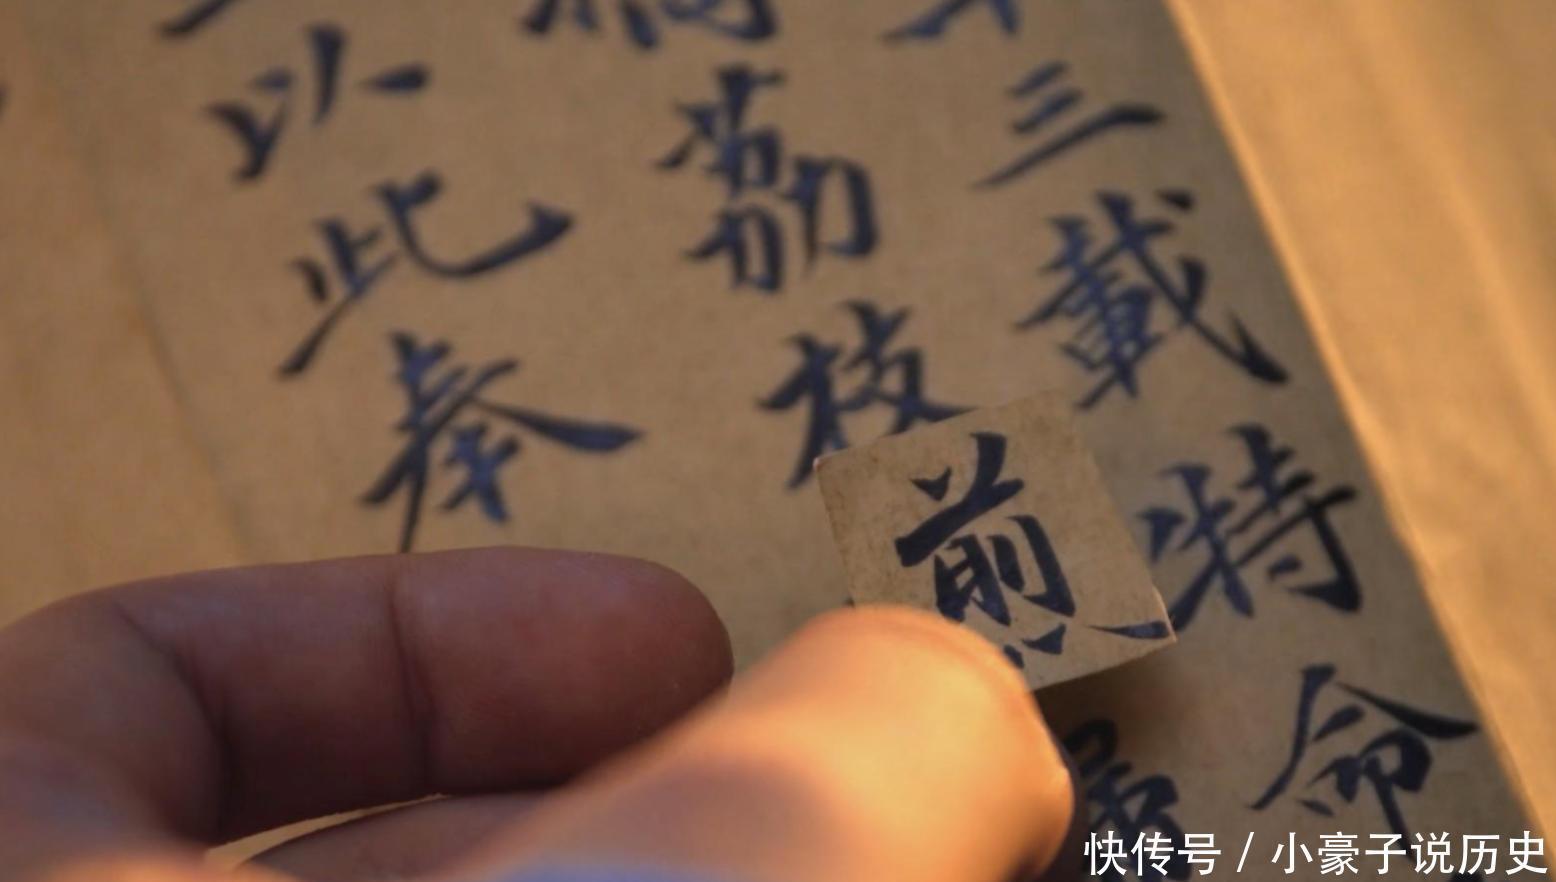 三載特命
荔枝
煎
以此奉
快传号 / 小豪子说历史